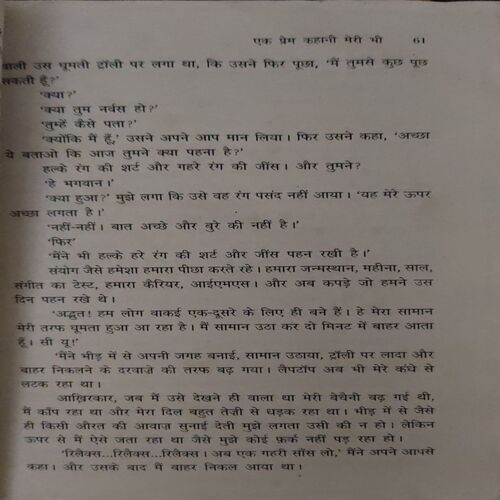 एक प्रेम कहानी मेरी भी 61
वाली उस घूमती ट्रॉली पर लगा था, कि उसने फिर पूछा, 'मैं तुमसे कुछ पूछ
सकती हूँ?'
'क्या?'
'क्या तुम नर्वस हो?'
'तुम्हें कैसे पता?'
'क्योंकि मैं हूँ,' उसने अपने आप मान लिया। फिर उसने कहा, 'अच्छा
ये बताओ कि आज तुमने क्या पहना है?'
हल्के रंग की शर्ट और गहरे रंग की जींस। और तुमने?
'हे भगवान।'
'क्या हुआ?' मुझे लगा कि उसे वह रंग पसंद नहीं आया। 'यह मेरे ऊपर
अच्छा लगता है।'
'नहीं-नहीं। बात अच्छे और बुरे की नहीं है।'
'फिर'
'मैंने भी हल्के हरे रंग की शर्ट और जींस पहन रखी है।'
संयोग जैसे हमेशा हमारा पीछा करते रहे। हमारा जन्मस्थान, महीना, साल,
संगीत का टेस्ट, हमारा कैरियर, आईएमएस। और अब कपड़े जो हमने उस
दिन पहन रखे थे।
'अद्भुत! हम लोग वाकई एक-दूसरे के लिए ही बने हैं। हे मेरा सामान
मेरी तरफ घूमता हुआ आ रहा है। मैं सामान उठा कर दो मिनट में बाहर आता
हूँ। सी यू!'
'मैंने भीड़ में से अपनी जगह बनाई, सामान उठाया, ट्रॉली पर लादा और
बाहर निकलने के दरवाज़े की तरफ बढ़ गया। लैपटॉप अब भी मेरे कंधे से
लटक रहा था।
आख़िरकार, जब मैं उसे देखने ही वाला था मेरी बेचैनी बढ़ गई थी,
मैं काँप रहा था और मेरा दिल बहुत तेज़ी से धड़क रहा था। भीड़ में से जैसे
ही किसी औरत की आवाज़ सुनाई देती मुझे लगता उसी की न हो। लेकिन
ऊपर से मैं ऐसे जता रहा था जैसे मुझे कोई फ़र्क नहीं पड़ रहा हो।
'रिलैक्स...रिलैक्स...रिलैक्स। अब एक गहरी साँस लो,' मैंने अपने आपसे
कहा। और उसके बाद मैं बाहर निकल आया था।